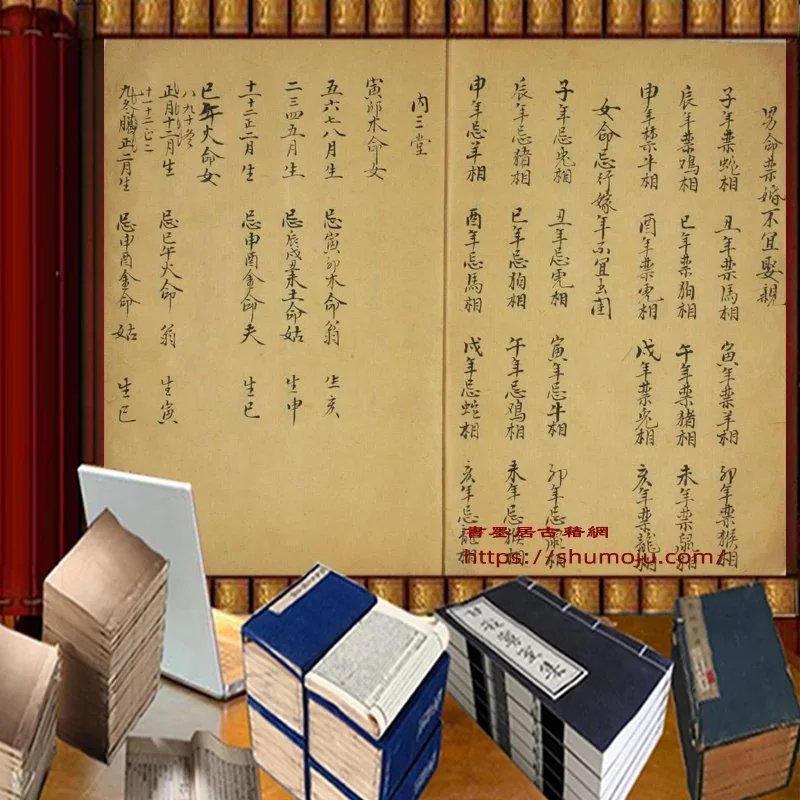 男命禁婚不宜娶親
子年禁蛇相 丑年禁馬相 寅年禁羊相 卯年禁猴相
辰年禁鸡相 巳年禁狗相 午年禁猪相 未年禁鼠相
申年禁牛相 酉年禁虎相 戌年禁兎相 亥年禁龍相
女命忌行嫁年不宜出閨
子年忌兎相 丑年忌虎相 寅年忌牛相 卯年忌鼠相
辰年忌猪相 巳年忌狗相 午年忌鸡相 未年忌猴相
申年忌羊相 酉年忌馬相 戌年忌蛇相 亥年忌龍相
內三堂
寅卯木命女
五六七八月生 忌寅卯木命翁 生亥
二三四五月生 忌辰戌丑未土命姑 生申
十一十二正二月生 忌申酉金命夫 生巳
巳午火命女
八九十
正月十二月生 忌巳午火命翁 生寅
十一十二正二
正二月生 忌申酉金命姑 生巳
書墨居古籍網
https://shumoju.com/